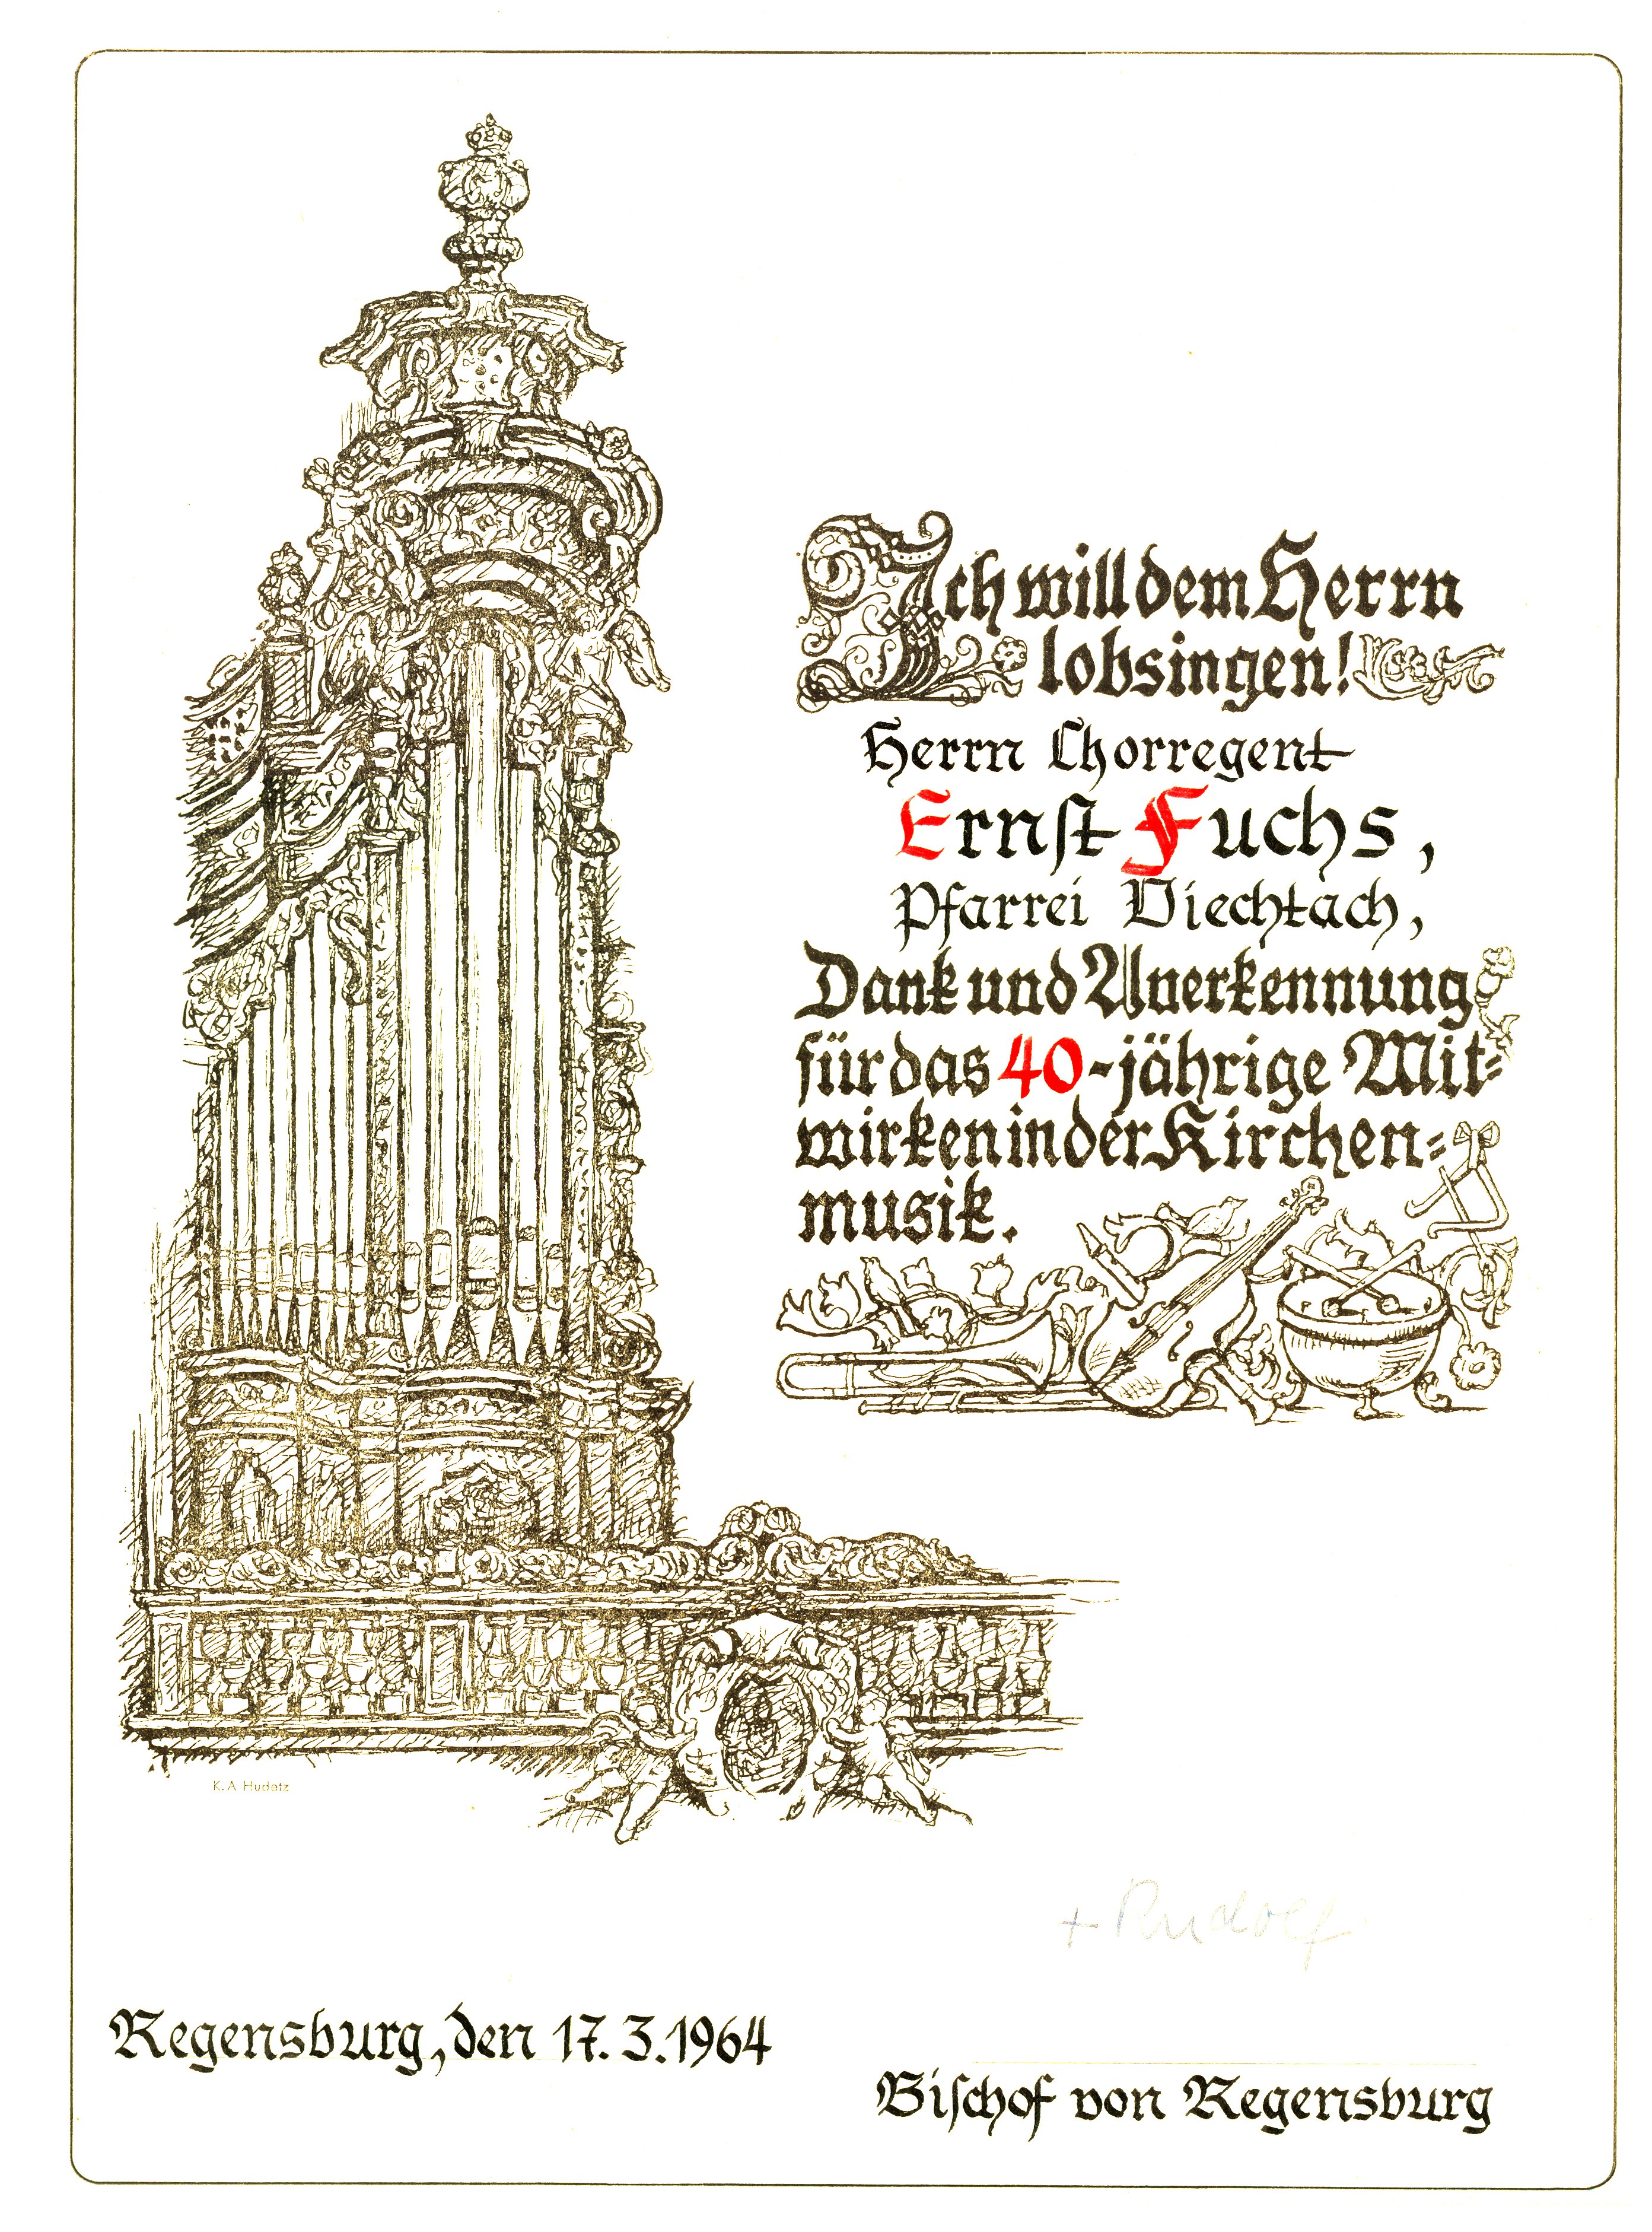 Ich will dem Herrn
lobsingen!
Herrn Chorregent
Ernst Fuchs,
Pfarrei Viechtach,
Dank und Anerkennung
für das 40-jährige Mit-
wirken in der Kirchen-
musik.
K. A Hudetz
+ Rudolf
Regensburg, den 17. 3. 1964
Bischof von Regensburg